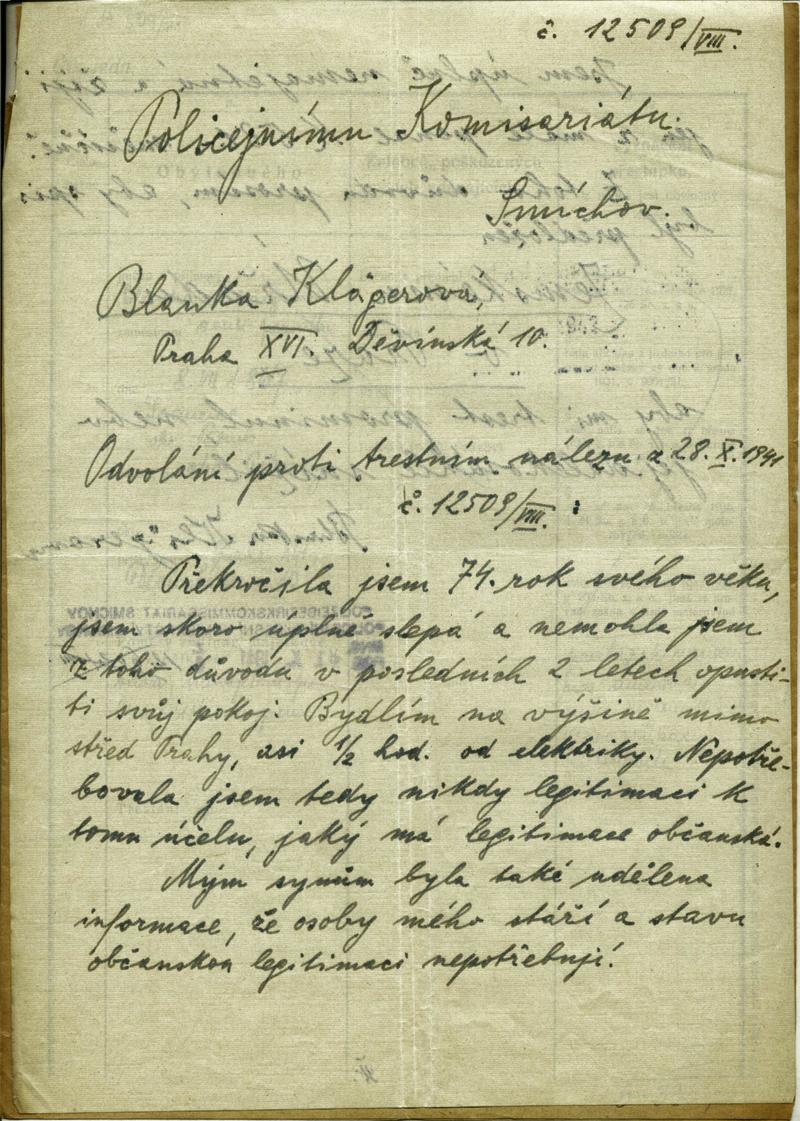 č. 12509/VIII.
Policejnímu Komisariátu.
Smíchov.
Blanka Klägerová,
Praha XVI. Děvínská 10.
Odvolání proti trestním nálezu z 28. X. 1941
č. 12509/VIII. :
Překročila jsem 74. rok svého věku,
jsem skoro úplně slepá a nemohla jsem
z toho důvodu v posledních 2 letech opusti-
ti svůj pokoj. Bydlím na výšině mimo
střed Prahy, asi 1/2 hod. od elektriky. Nepotře-
bovala jsem tedy nikdy legitimaci k
tomu účelu, jaký má legitimace občanská.
Mým synům byla také udělena
informace, že osoby mého stáří a stavu
občanskou legitimaci nepotřebují.